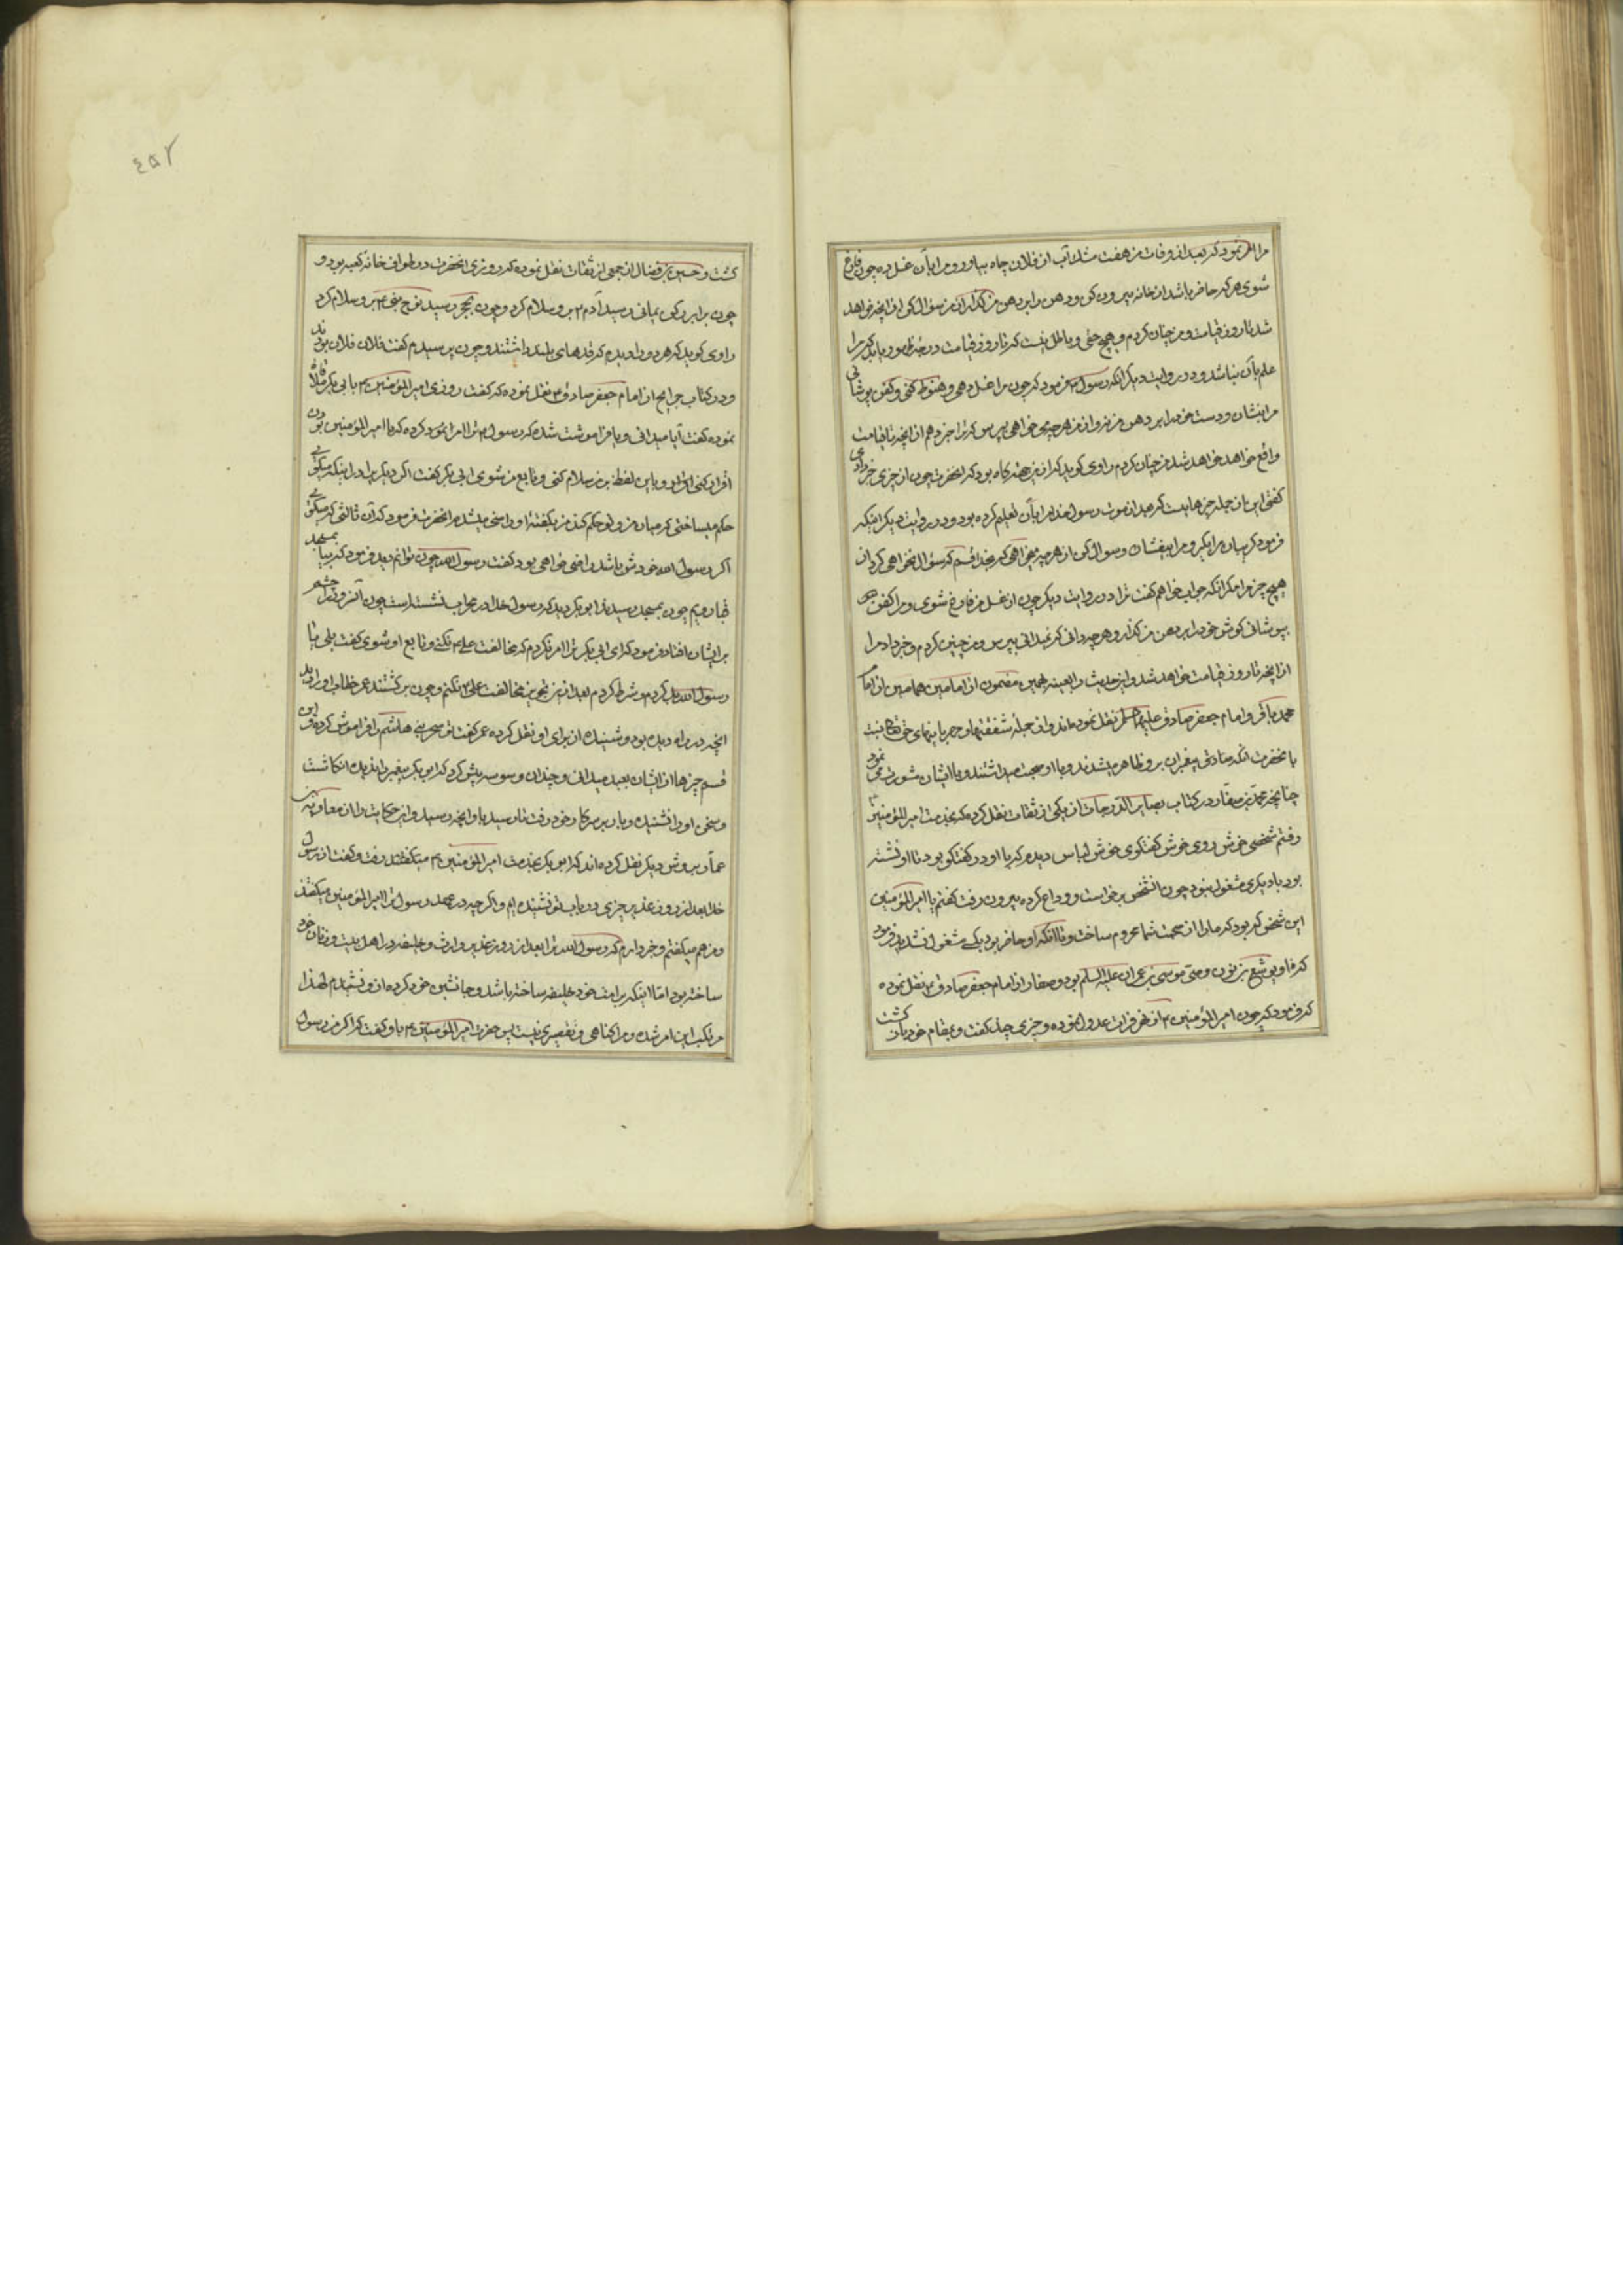 مرا امر نمود که بعد از وفات من هفت مشک آب از فلان چاه بیاور و مرا بآن غسل ده چون فارغ
شوی هر که حاضر باشد از خانه بیرون کن و دهن را بر دهن من گذار از من سؤال کن از آنچه خواهد
شد تا روز قیامت و من چنان کردم و هیچ حقی و باطلی نیست که تا روز قیامت در ظهور یابد که مرا
علم بآن نباشد و در روایت دیگر آنکه رسول فرمود که چون مرا غسل دهی و حنوط کنی و کفن پوشانی
مرا بنشان و دست خود را بر دهن من نه و از من هر چه می خواهی بپرس که ترا خبر دهم از آنچه تا قیامت
واقع خواهد شد من چنان کردم راوی گوید که از این جهت گاه بود که آنحضرت چون از چیزی خبر دادی
گفتی این از آن جمله چیزهایست که بعد از موت رسول خدا مرا بآن تعلیم کرده بود و در روایت دیگر اینکه
فرمود گریبان مرا بگیر و مرا بنشان و سؤال کن از هر چه میخواهی که بخدا قسم که سؤال نخواهی کرد از
هیچ چیز مرا مگر آنکه جواب خواهم گفت ترا و در روایت دیگر چون از غسل من فارغ شوی و مرا کفن
بپوشانی گوش خود را بر دهن من گذار و هر چه دانی که نمیدانی بپرس من چنین کردم و خبر داد مرا
از آنچه تا روز قیامت خواهد شد و این حدیث را بعینه بهمین مضمون از امامین همامین امام
محمد باقر و امام جعفر صادق علیهما السلم نقل نموده اند و از جمله شفقتها و مهربانیهای حق تعالی نسبت
بآنحضرت آنکه بمنادق پیغمبران بر او ظاهر میشدند و با او صحبت میداشتند و با ایشان مشورت می نمود
چنانچه محمد بن صفار در کتاب بصایر الدرجات از یکی از ثقات نقل کرده که بخدمت امیر المؤمنین
رفتم شخصی خوش روی خوش گفتگوی خوش لباس دیدم که با او در گفتگو بود تا او نشسته
بود با دیگری مشغول نبود چون آن شخص برخواست و وداع کرده بیرون رفت گفتم یا امیر المؤمنین
این شخص که بود که ما را از صحبت شما محروم ساخت و تا آنکه او حاضر بود بکسی مشغول نشدید فرمود
که او یوشع بن نون وصی موسی بن عمران علیه السلم بود و صفار از امام جعفر صادق نقل نموده
که فرمود که چون امیر المؤمنین از نهر فرات عدول نموده و چیزی چند گفت و بمقام خود باز گشت
گشت و حسین بن فضال از جمعی از ثقات نقل نموده که روزی آنحضرت در طواف خانه کعبه بود و
چون برابر رکن یمانی رسید آدم بر او سلام کرد و چون بحجر رسید نوح نبی بر او سلام کرد
راوی گوید که هر دو را دیدم که قدهای بلند داشتند و چون پرسیدم گفت فلان فلان بودند
و در کتاب جرایح از امام جعفر صادق نقل نموده که گفت روزی امیر المؤمنین با ابی بکر ملاقات
نموده گفت آیا میدانی و یا فراموشت شده که رسول ترا امر نمود کرده که با امیر المؤمنین بودن
اقرار کنی و باین لفظ بر من سلام کنی و تابع من شوی ابی بکر گفت اگر دیگری را در اینکه میگوئی
حکم میساختی که میان من و تو حکم کند من بگفته او راضی میشدم آنحضرت فرمود که آن ثالثی که میگوئی
اگر رسول الله خود شود باشد راضی خواهی بود گفت رسول الله چون توانم دید فرمود که بیا بمسجد
قبا رویم چون بمسجد رسیدند ابو بکر دید که رسول خدا در محراب نشسته است چون آنسرور را چشم
بر ایشان افتاد فرمود که ای ابی بکر ترا امر نکردم که مخالفت علی نکنی و تابع او شوی گفت بلی یا
رسول الله بد کردم و شرط کردم بعد از این مخالفت علی نکنم و چون برگشتند عمر خطاب او را دید
آنچه در راه دیده بود و شنیده از برای او نقل کرده عمر گفت تو سحر بنی هاشم را فراموش کرده و این
قسم چیزها از ایشان بعید میدانی و چندان وسوسه پیش کرد که ابو بکر پیغمبر را ندیده انگاشت
و سخن او را نشنیده و باز بر سر کار خود رفت تا رسید باو آنچه رسید و این حکایت را از معاویه بن
عمار بروش دیگر نقل کرده اند که ابو بکر بخدمت امیر المؤمنین رفت و گفت از رسول
خدا بعد از روز غدیر چیزی در باب تو نشنیده ام و اگر چه در عهد رسول ترا امیر المؤمنین میگفتند
و من هم میگفتم و خبر دارم که رسول الله ترا بعد از روز غدیر وارث و خلیفه در اهل بیت و زنان خود
ساخته بود اما اینکه بر امت خود خلیفه ساخته باشد و جانشین خود کرده از او نشنیدم لهذا
مرتکب این امر شده و مرا گناهی و تقصیری نیست پس حضرت امیر المؤمنین باو گفت که اگر من رسول
۴۵۲